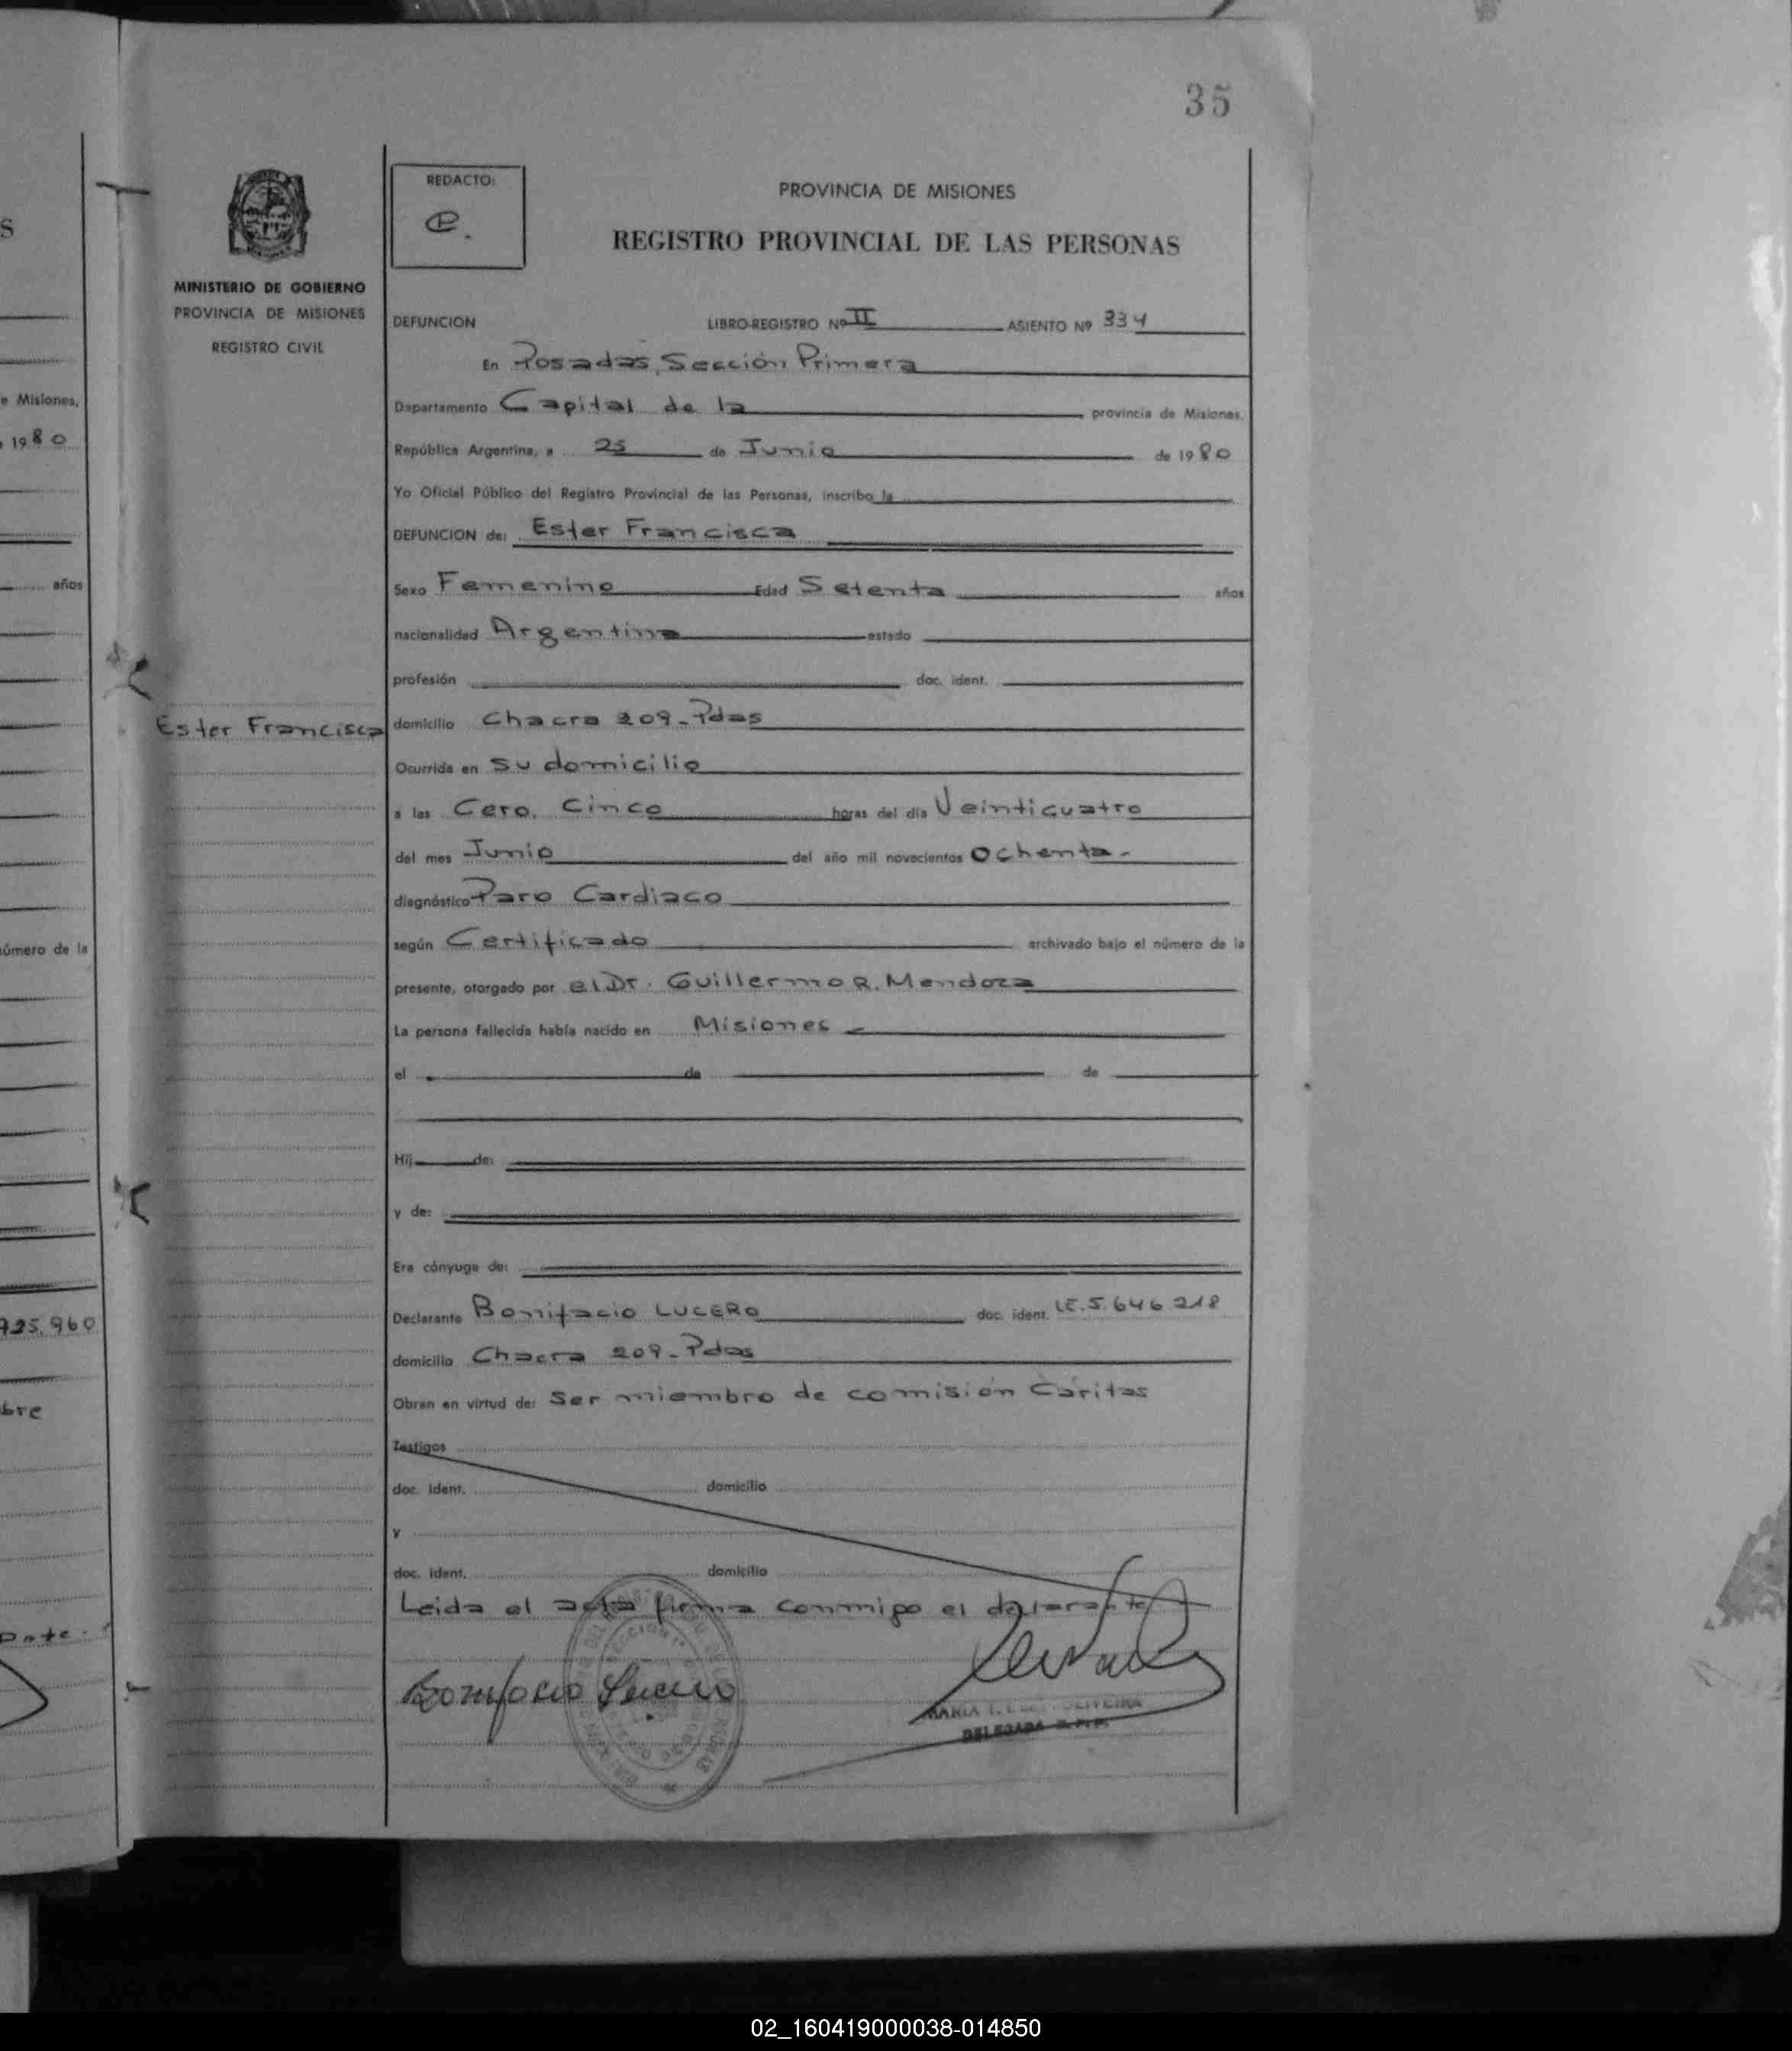 35
S
e Misiones,
, 1980
años
úmero de la
925.960
bre
MINISTERIO DE GOBIERNO
PROVINCIA DE MISIONES
REGISTRO CIVIL
Ester Francisca
REDACTO:
PROVINCIA DE MISIONES
REGISTRO PROVINCIAL DE LAS PERSONAS
DEFUNCION LIBRO-REGISTRO Nº II ASIENTO Nº 334
En Posadas, Sección Primera
Departamento Capital de la provincia de Misiones.
República Argentina, a 25 de Junio de 1980
Yo Oficial Público del Registro Provincial de las Personas, inscribo la
DEFUNCION de: Ester Francisca
Sexo Femenino Edad Setenta años
nacionalidad Argentina estado
profesión doc. ident.
domicilio Chacra 209 - Pdas
Ocurrida en su domicilio
a las Cero, Cinco horas del día Veinticuatro
del mes Junio del año mil novecientos Ochenta -
diagnóstico Paro Cardiaco
según Certificado archivado bajo el número de la
presente, otorgado por el Dr. Guillermo R. Mendoza
La persona fallecida había nacido en Misiones
el de de
Hij de:
y de:
Era cónyuge de:
Declarante Bonifacio LUCERO doc. ident. LE. 5.646 218
domicilio Chacra 209 - Pdas
Obran en virtud de: Ser miembro de comisión Caritas
Testigos
doc. ident. domicilio
y
doc. ident. domicilio
Leida el acta firma conmigo el declarante
Bonifacio Lucero
DELEGADA
02_160419000038-014850